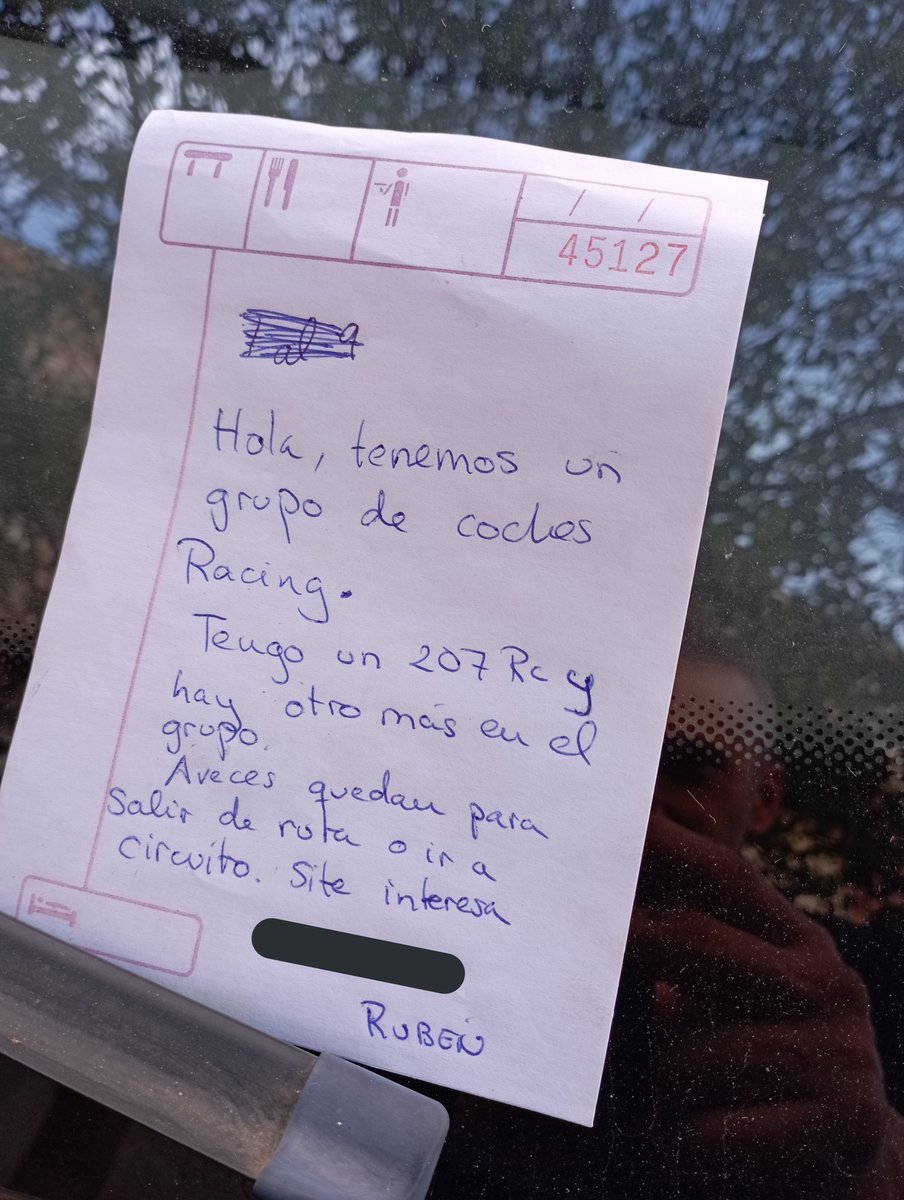 45127
Hola, tenemos un
grupo de coches
Racing.
Tengo un 207 Rc y
hay otro más en el
grupo.
Aveces quedan para
Salir de ruta o ir a
circuito. Site interesa
RUBEN